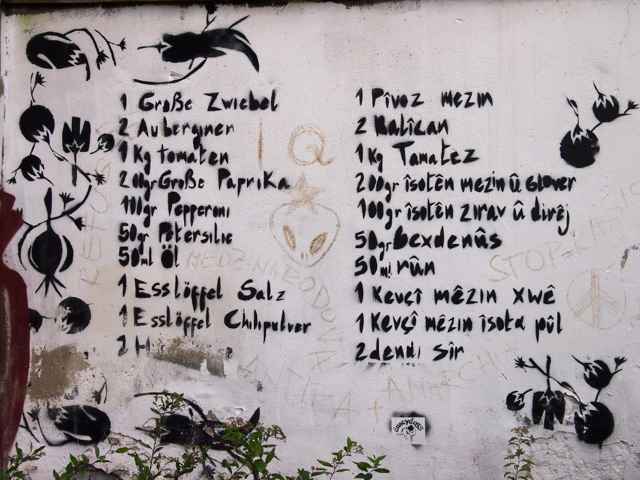 1 Große Zwiebel
2 Auberginen
1 Kg Tomaten
200gr Große Paprika
100gr Pepperoni
50gr Petersilie
50ml Öl
1 Esslöffel Salz
1 Esslöffel Chilipulver
2 H
1 Pîvoz mezin
2 Balîcan
1Kg Tamatez
200gr îsotên mezin û stover
100gr îsotên zirav û dirêj
50gr bexdenûs
50ml rûn
1 Kevçî mêzin xwê
1 Kevçî mêzin îsota pûl
2 dendi sîr
IQ
ANTIFA + ANARCHI